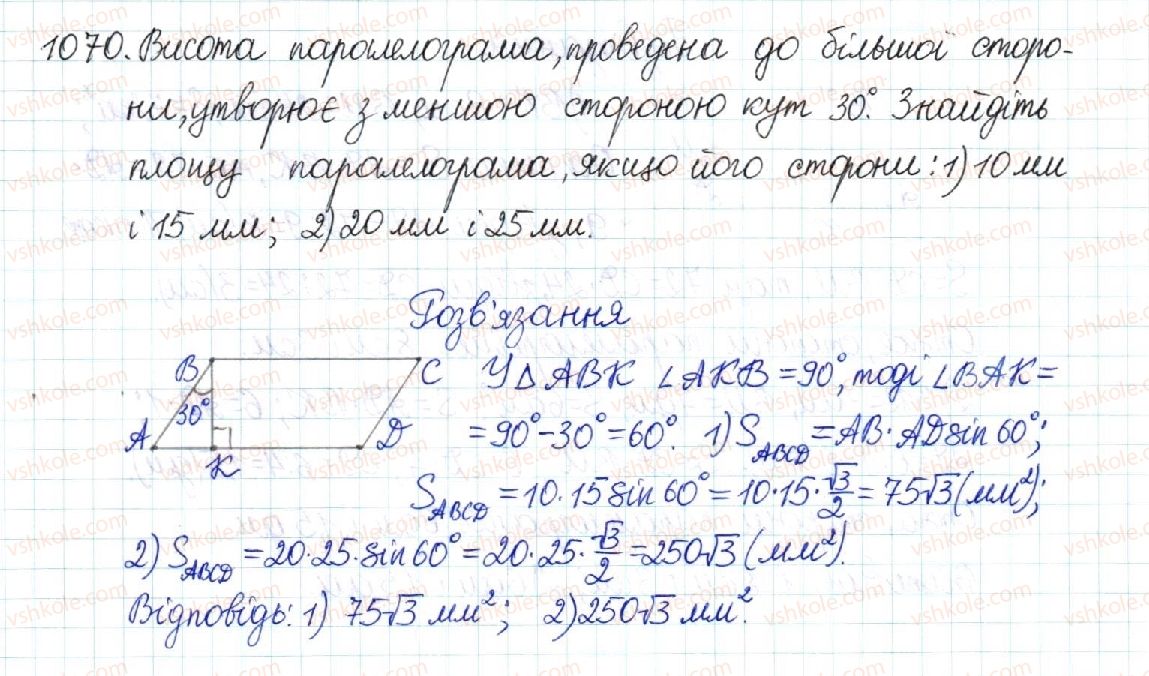 1070. Висота паралелограма, проведена до більшої сторо-
ни, утворює з меншою стороною кут 30°. Знайдіть
площу паралелограма, якщо його сторони: 1) 10 мм
і 15 мм; 2) 20 мм і 25 мм.
Розв'язання
B C У △ ABK ∠AKB = 90°, тоді ∠BAK =
30°
A K D = 90° - 30° = 60°. 1) S_ABCD = AB · AD sin 60°;
S_ABCD = 10 · 15 sin 60° = 10 · 15 · √3/2 = 75√3 (мм²);
2) S_ABCD = 20 · 25 · sin 60° = 20 · 25 · √3/2 = 250√3 (мм²).
Відповідь: 1) 75√3 мм²; 2) 250√3 мм².
vshkole.com